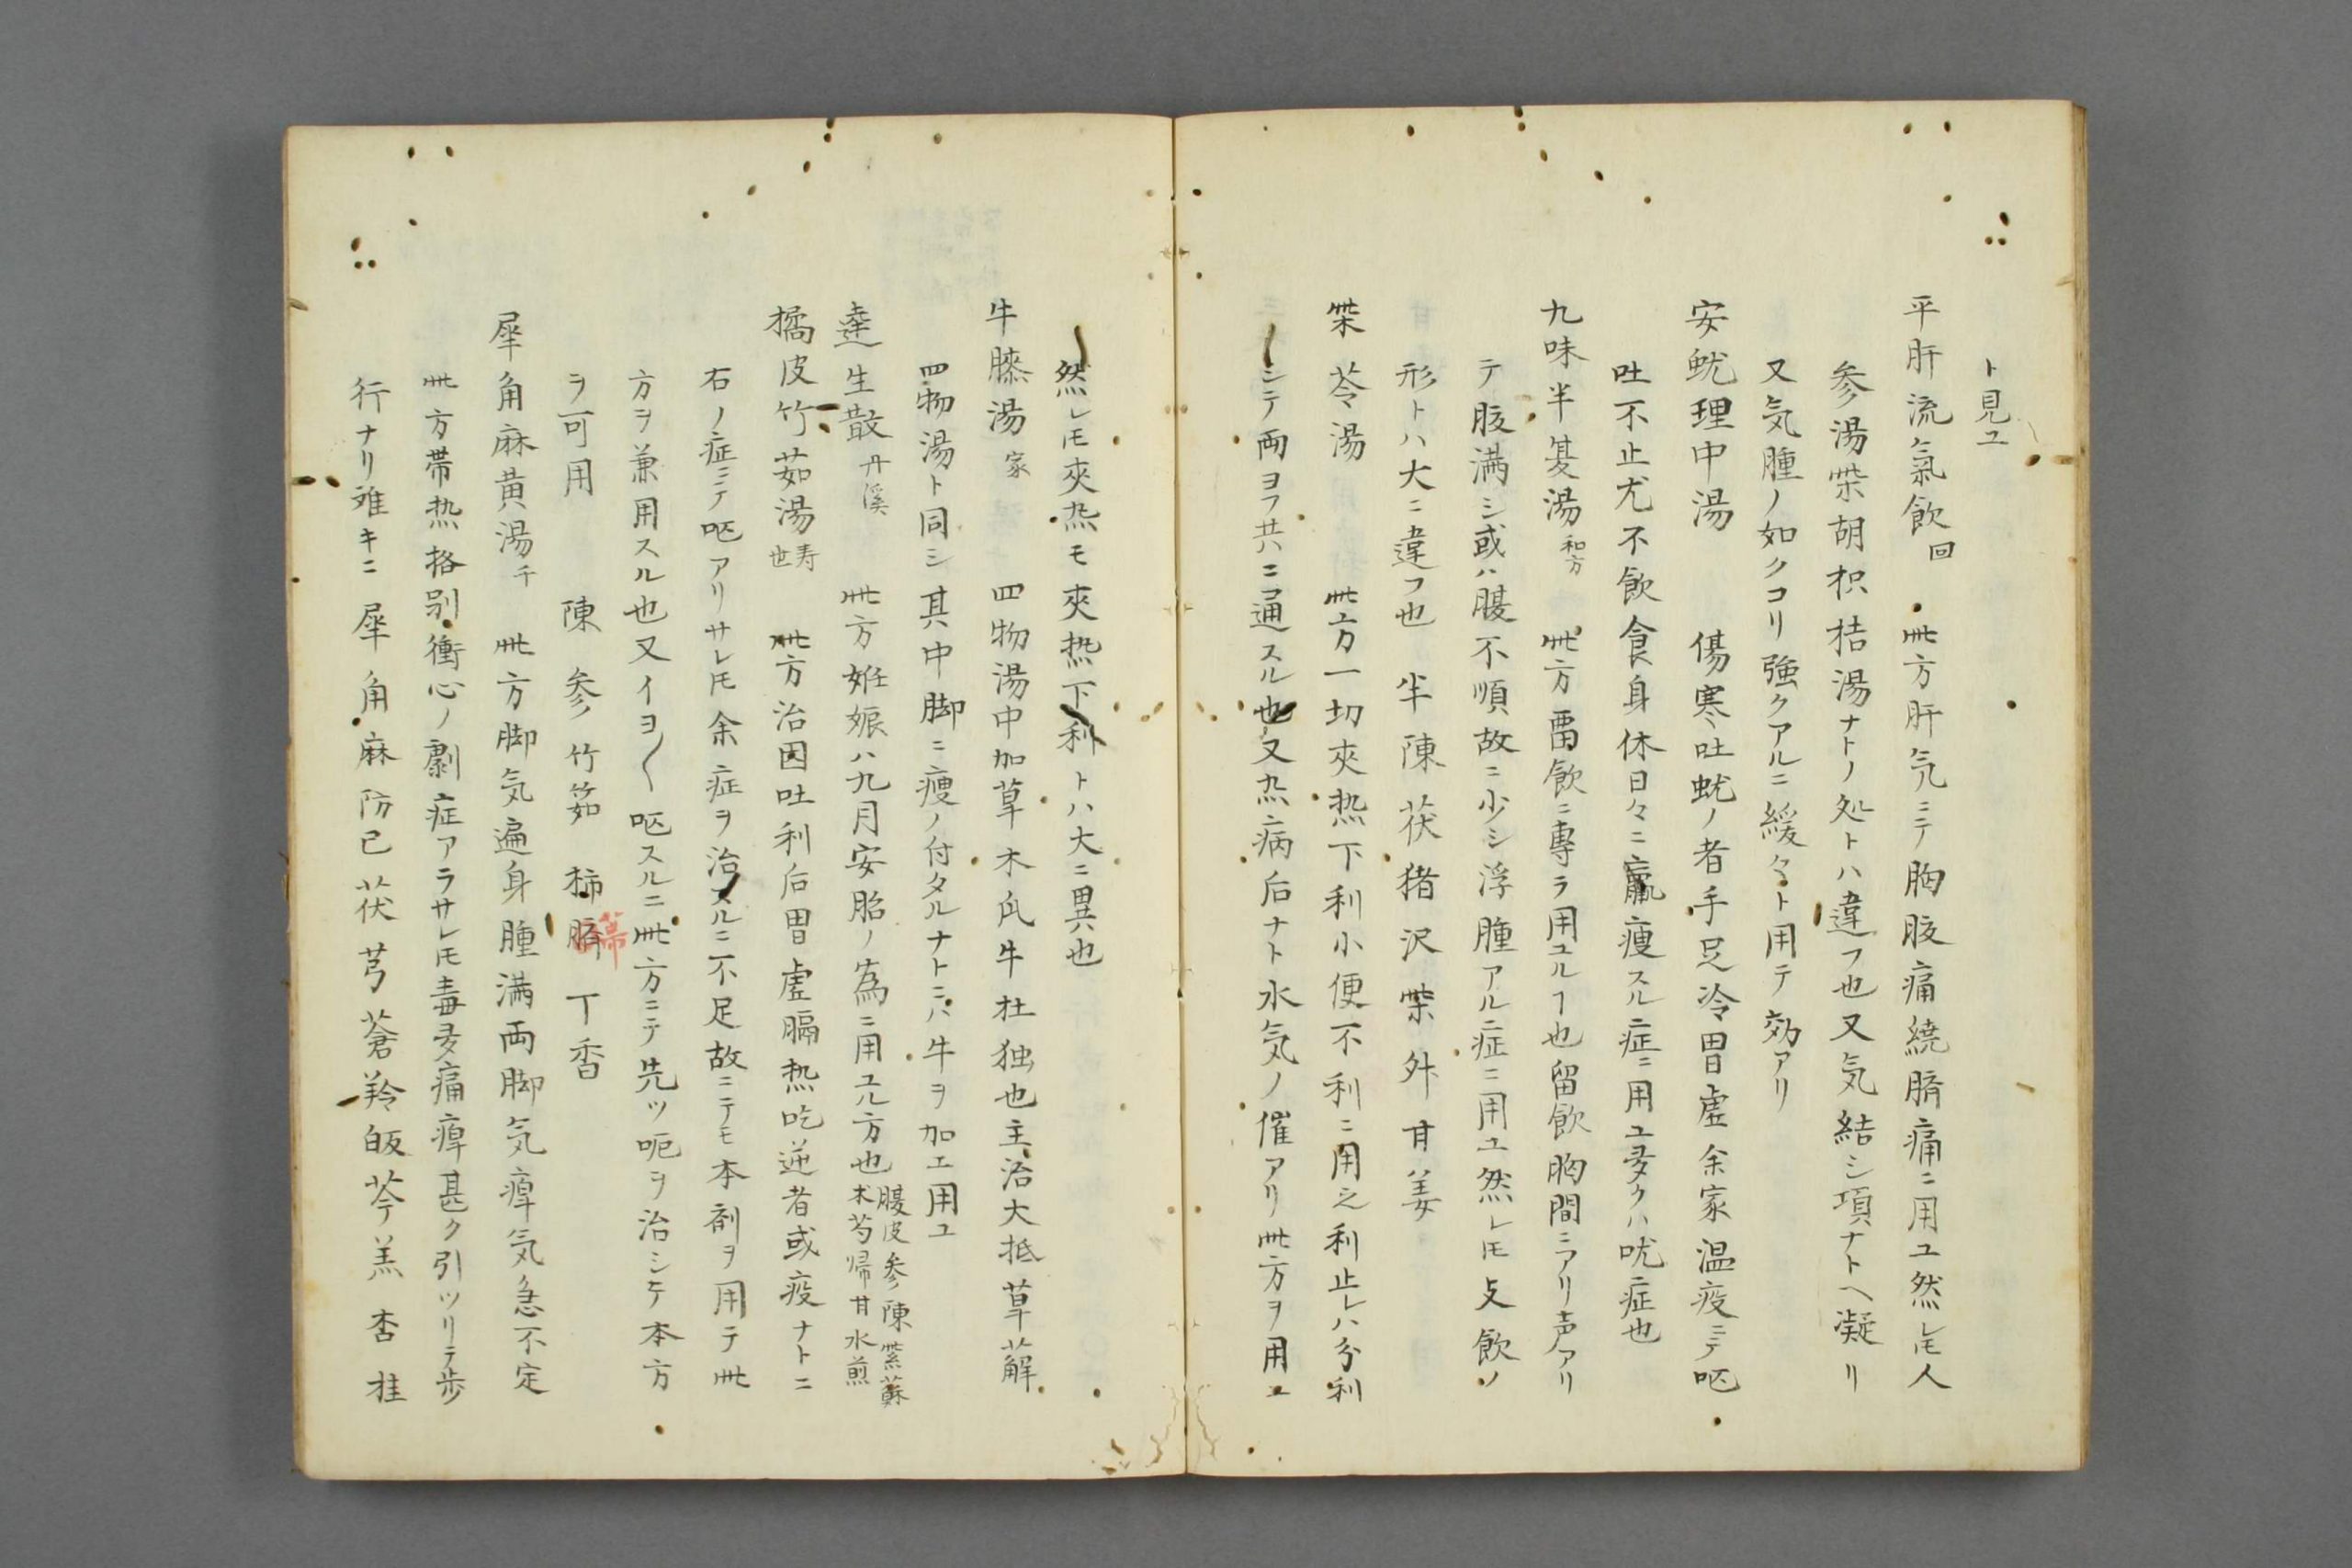 ト見ユ
平肝流氣飲回 此方肝気ニテ胸肢痛繞臍痛ニ用ユ然レ𪜈人
参湯柴胡枳桔湯ナトノ処トハ違フ也又気結シ項ナトヘ凝リ
又気腫ノ如クコリ強クアルニ緩々ト用テ効アリ
安蚘理中湯 傷寒吐蚘ノ者手足冷胃虚余家温疫ニテ嘔
吐不止尤不飲食身休日々ニ羸痩スル症ニ用ユ多クハ吮症也
九味半夏湯和方 此方畱飲ニ専ラ用ユルヿ也留飲胸間ニアリ声アリ
テ肢満シ或ハ腹不順故ニ少シ浮腫アル症ニ用ユ然レ𪜈支飲ノ
形トハ大ニ違フ也 半陳茯猪沢柴外甘姜
柴苓湯 此方一切夾熱下利小便不利ニ用之利止レハ分利
シテ両ヨフ共ニ通スル也又热病后ナト水気ノ催アリ此方ヲ用ユ
然レ𪜈夾热モ夾热下利トハ大ニ異也
牛膝湯家 四物湯中加草木瓜牛杜独也主治大抵草薢
四物湯ト同シ其中脚ニ痩ノ付タルナトニハ牛ヲ加エ用ユ
達生散丹溪 此方姙娠八九月安胎ノ為ニ用ユル方也腹皮参陳紫蘇
木芍帰甘水煎
橘皮竹茹湯寿世 此方治因吐利后胃虚膈热吃逆者或疫ナトニ
右ノ症ニテ嘔アリサレ𪜈余症ヲ治スルニ不足故ニテモ本剤ヲ用テ此
方ヲ兼用スル也又イヨ〱嘔スルニ此方ニテ先ツ呃ヲ治シテ本方
ヲ可用 陳参竹茹柿臍蒂丁香
犀角麻黄湯千 此方脚気遍身腫満両脚気痺気急不定
此方帯热格別衝心ノ劇症アラサレ𪜈毒多痛痺甚ク引ツリテ歩
行ナリ難キニ犀角麻防已茯芎蒼羚皈芩羔杏桂